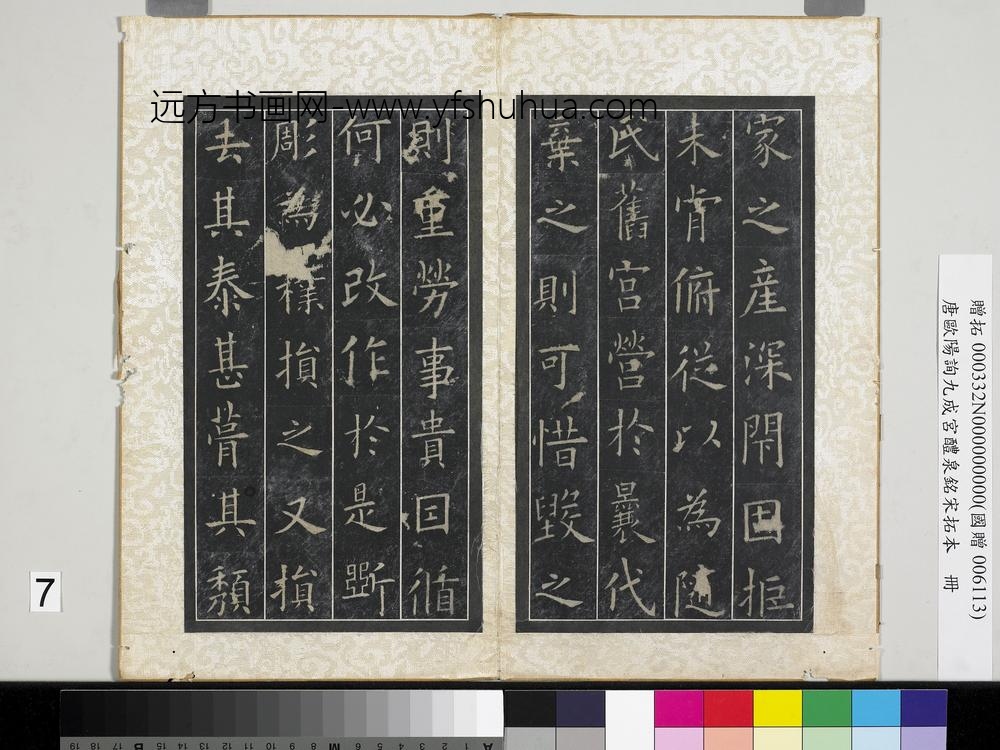 远方书画网-www.yfshuhua.com
家之產深閇固拒
未肯俯從以為隨
氏舊宮營於曩代
棄之則可惜毀之
則重勞事貴因循
何必改作於是斵
彫為樸損之又損
去其泰甚葺其頹
贈拓 000332N000000000(國贈 006113)
唐歐陽詢九成宮醴泉銘宋拓本 冊
7
19 18 17 16 15 14 13 12 11 10 9 8 7 6 5 4 3 2 1
B M A